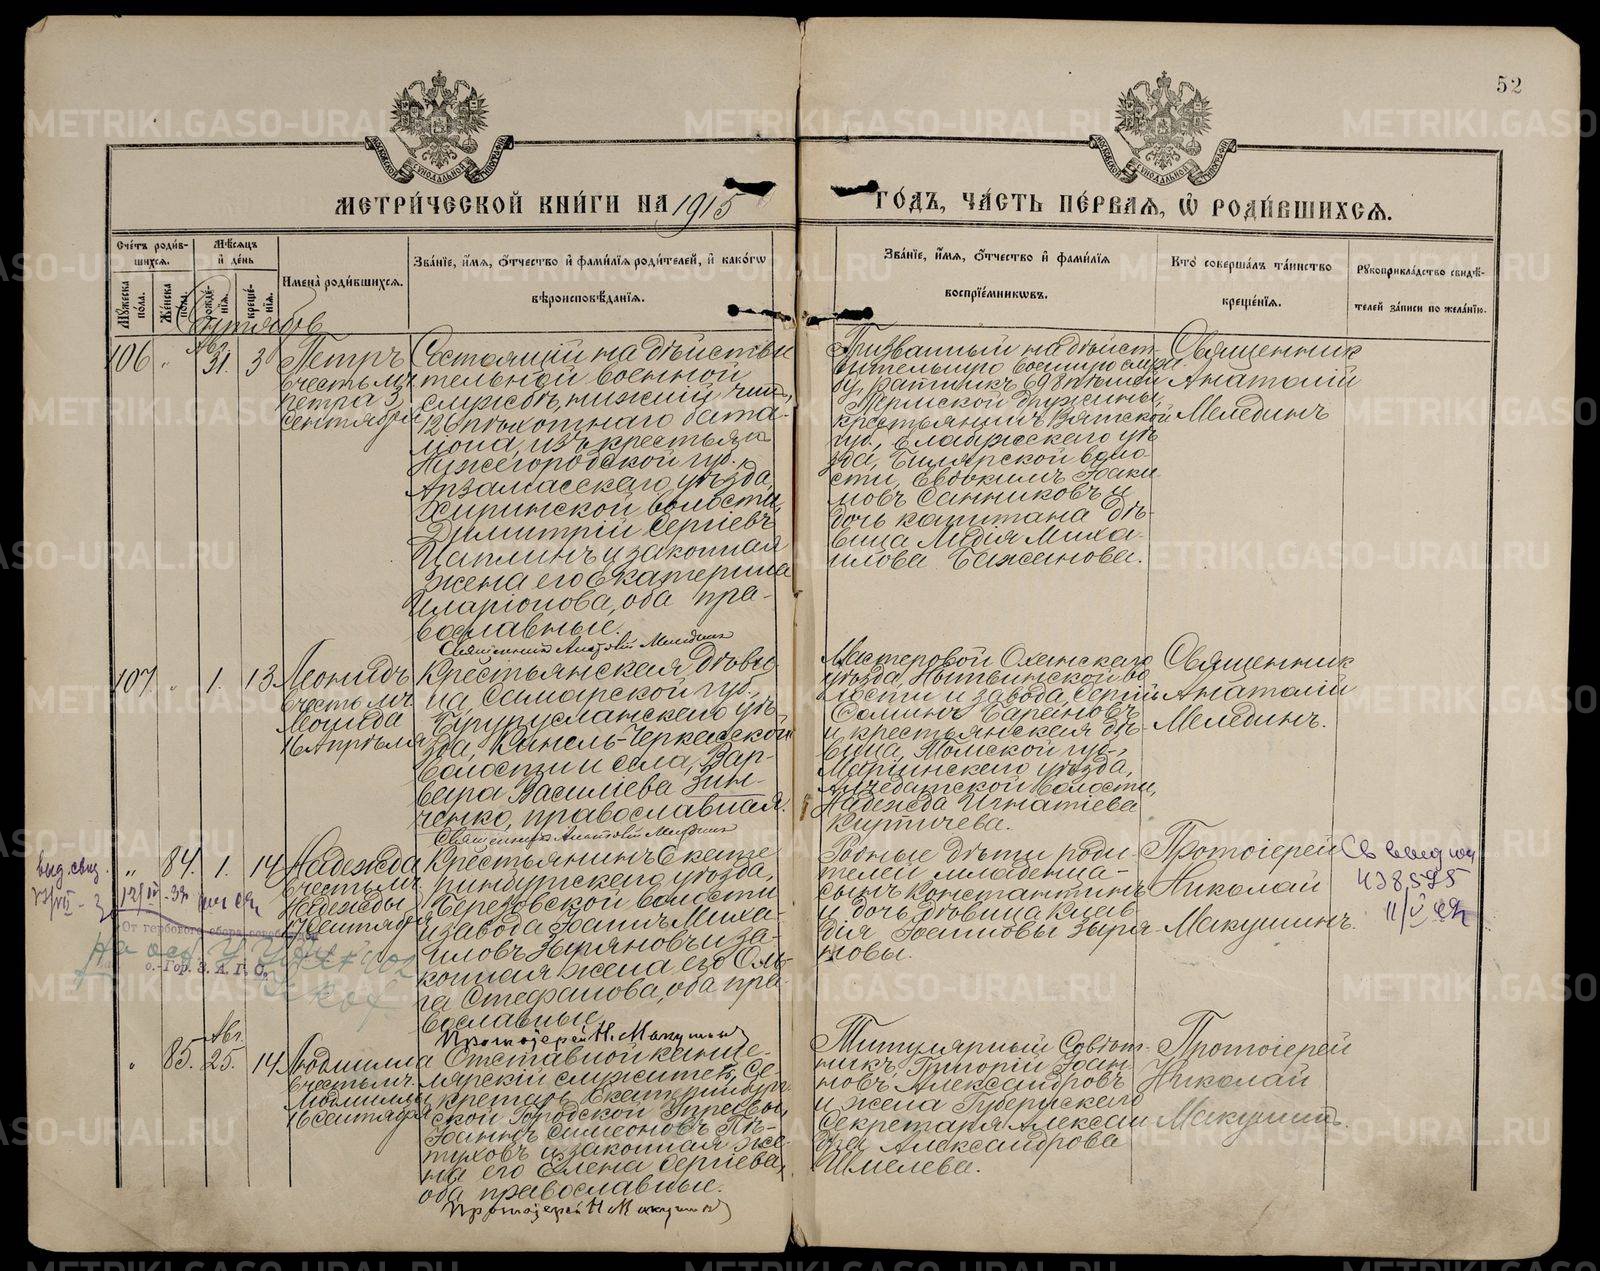 52
МЕТРИ́ЧЕСКОЙ КНИ́ГИ НА 1915
ГО́ДЪ, ЧА́СТЬ ПЕ́РВАЯ, Ѡ РОДИ́ВШИХСЯ.
Сче́тъ роди́вшихся.
Му́жеска пола.
Же́нска пола.
Мѣ́сяцъ и де́нь
рожде́нїя.
креще́нїя.
Имена̀ роди́вшихся.
Зва́нїе, и́мя, о́тчество и фами́лїя роди́телей, и како́гѡ
вѣроисповѣ́данїя.
Зва́нїе, и́мя, о́тчество и фами́лїя
воспрїе́мникѡвъ.
Кто̀ соверша́лъ та́инство
креще́нїя.
Рꙋкоприкла́дство свидѣ́-
телей за́писи по жела́нїю.
Сентябрь
106 " Авг. 31. 3
Петръ
въ честь мч.
Петра 3
сентября
Состоящій на дѣйстви
тельной военной
службѣ, нижній чин,
126 пѣхотнаго бата-
ліона, изъ крестьянъ
Нижегородской губ.,
Арзамасскаго уѣзда,
волости,
Димитрій Сергіевъ
Цаплинъ и законная
жена его Екатерина
Иларіонова, оба пра-
вославные.
Священникъ Анатолій Мелединъ
Призванный на дѣйст-
вительную военную служ
бу ратникъ 698 пѣшей
Пермской дружины,
крестьянинъ Вятской
губ., Елабужскаго уѣ
зда, Билярской воло
сти, Евдокимъ Іоаки
мовъ Санниковъ и
дочь капитана дѣ-
вица Лидія Миха-
илова Баженова.
Священник
Анатолій
Мелединъ
107 " 1. 13
Леонидъ
въ честь мч.
Леонида
16 Апрѣля
Крестьянская дѣви
ца, Самарской губ.,
Бугурусланскаго уѣ-
зда, Кинель-Черкасской
волости и села, Вар-
вара Василіева Зин-
ченко, православная.
Священникъ Анатолій Мелединъ
Мастеровой Оханскаго
уѣзда, Нытвинской во
лости и завода, Сергій
и крестьянская дѣ-
вица, Томской губ.,
Маріинскаго уѣзда,
Алчедатской волости,
Надежда Игнатіева
Кирпичева.
Священник
Анатолій
Мелединъ.
" 84. 1. 14
Надежда
въ честь мч.
Надежды
17 сентября
Крестьянинъ Екате
ринбургскаго уѣзда,
Березовской волости
и завода Іоаннъ Миха
иловъ Зыряновъ и за-
конная жена его Оль-
га Стефанова, оба пра-
вославные.
Протоіерей Н. Макушинъ
Родные дѣти роди-
телей младенца-
сынъ Константинъ
и дочь дѣвица Клав
дія Іоанновы Зыря-
новы.
Протоіерей
Николай
Макушинъ.
438595
11/V
выд. свид.
От гербового сбора
о.-Гор. З. А. Г. С.
" 85. Авг. 25. 14
Людмилла
въ честь мч.
Людмиллы
16 сентября
Отставной канце-
лярскій служитель, Се-
кретарь Екатеринбург
ской Городской Управы
Іоаннъ Симеоновъ Пѣ-
туховъ и законная же-
на его Елена Сергіева,
оба православные.
Протоіерей Н. Макушинъ
Титулярный Совѣт-
никъ, Григорій Іоан-
новъ Александровъ
и жена Губернскаго
Секретаря Александ
ра Александрова
Шмелева.
Протоіерей
Николай
Макушинъ.
METRIKI.GASO-URAL.RU